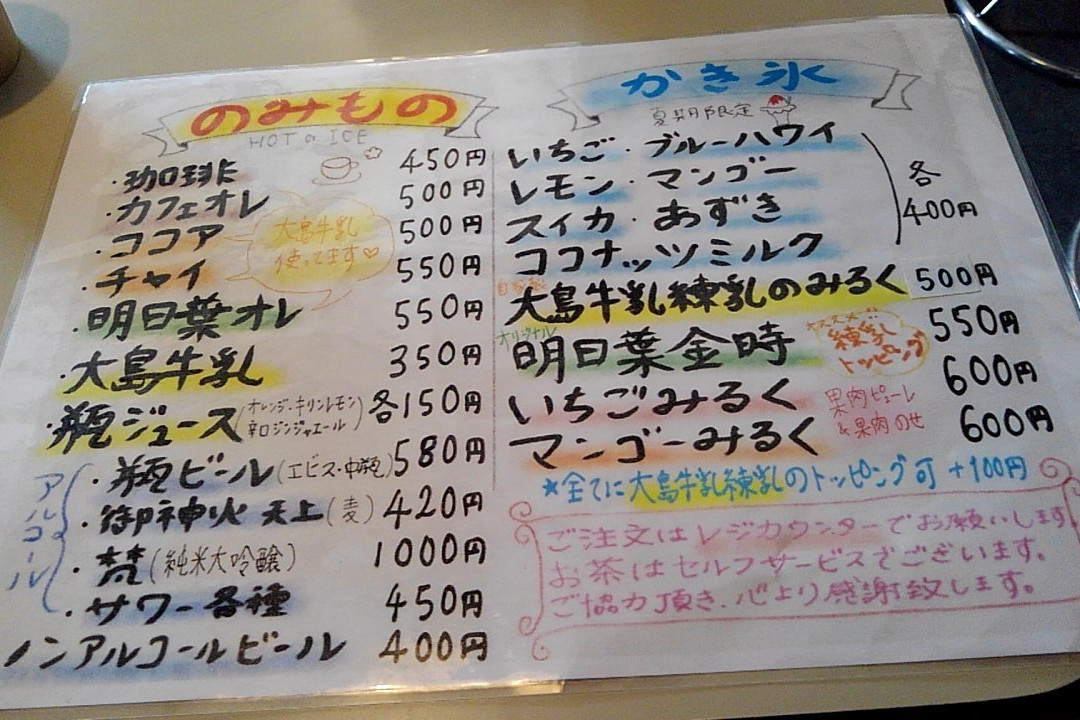 のみもの
HOT or ICE
・珈琲 450円
・カフェオレ 500円
・ココア 500円
・チャイ 550円
大島牛乳
使ってます♡
・明日葉オレ 550円
・大島牛乳 350円
・瓶ジュース(オレンジ・キリンレモン 辛口ジンジャエール) 各150円
アルコール
・瓶ビール(エビス・中瓶) 580円
・御神火 天上(麦) 420円
・梵(純米大吟醸) 1000円
・サワー各種 450円
ノンアルコールビール 400円
かき氷
夏期限定
いちご・ブルーハワイ
レモン・マンゴー
スイカ・あずき
ココナッツミルク
各
400円
自家製
大島牛乳練乳のみるく 500円
オリジナル
明日葉金時 550円
オススメ
練乳
トッピング
いちごみるく 600円
マンゴーみるく 600円
果肉ピューレ
&果肉のせ
★全てに大島牛乳練乳のトッピング可 +100円
ご注文はレジカウンターでお願いします
お茶はセルフサービスでございます。
ご協力頂き、心より感謝致します。